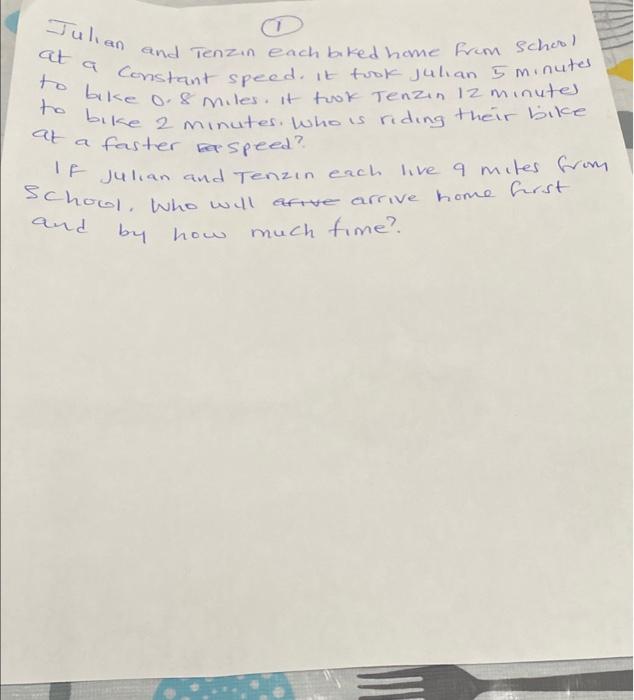 1
Julian and Tenzin each biked home from school
at a constant speed. It took Julian 5 minutes
to bike 0.8 miles. It took Tenzin 12 minutes
to bike 2 minutes. Who is riding their bike
at a faster speed?
If Julian and Tenzin each live 9 miles from
school. Who will arrive home first
and by how much time?